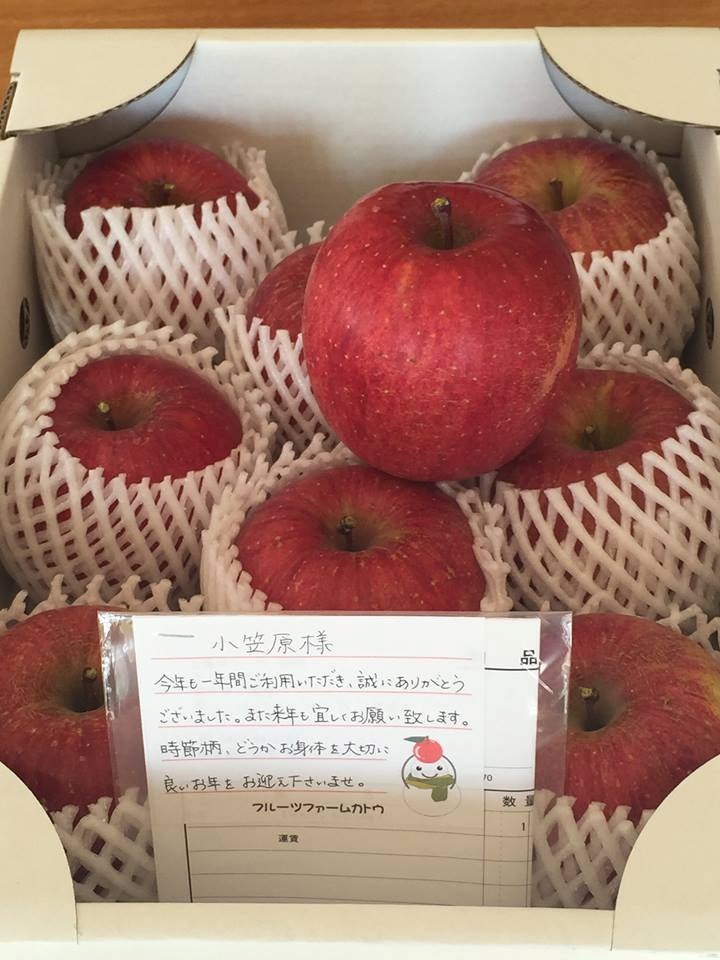 小笠原様
今年も一年間ご利用いただき、誠にありがとう
ございました。また来年も宜しくお願い致します。
時節柄、どうかお身体を大切に
良いお年をお迎え下さいませ。
フルーツファームカトウ
品
数量
1
運賃